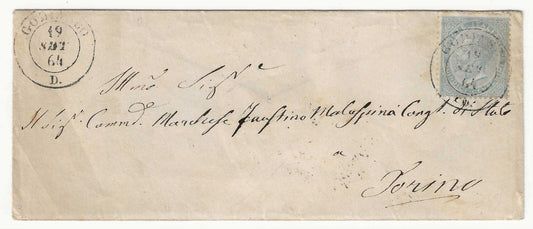 19
SET
64
D.
19
64
Illmo Sigre
Il Sigr Commd. Marchese Faustino Malaspina Consigl. di Stato
a
Torino